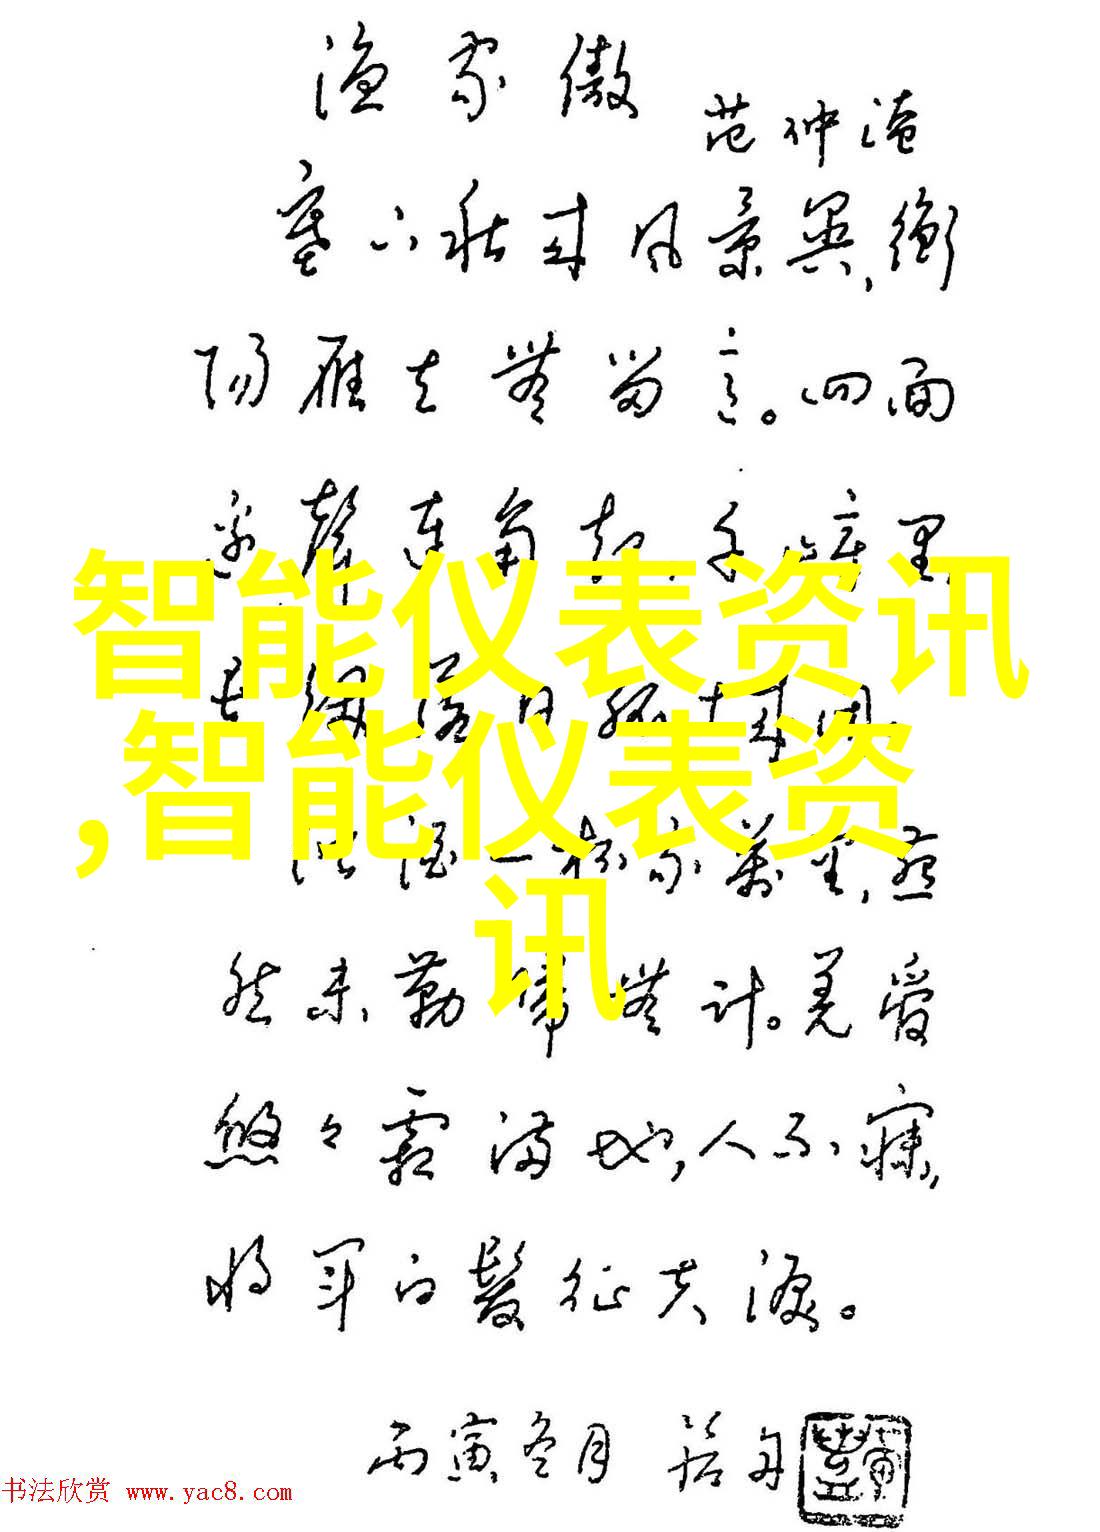 渔家傲
范仲淹
塞下秋来风景异,衡
阳雁去無留意。四面
边聲连角起,千嶂里,
长烟落日孤城闭。
浊酒一杯家萬里,燕
然未勒歸無计。羌管
悠々霜满地,人不寐,
将军白髮征夫淚。
丙寅冬月
智能仪表资讯
,智能仪表资
讯
书法欣赏 www.yac8.com